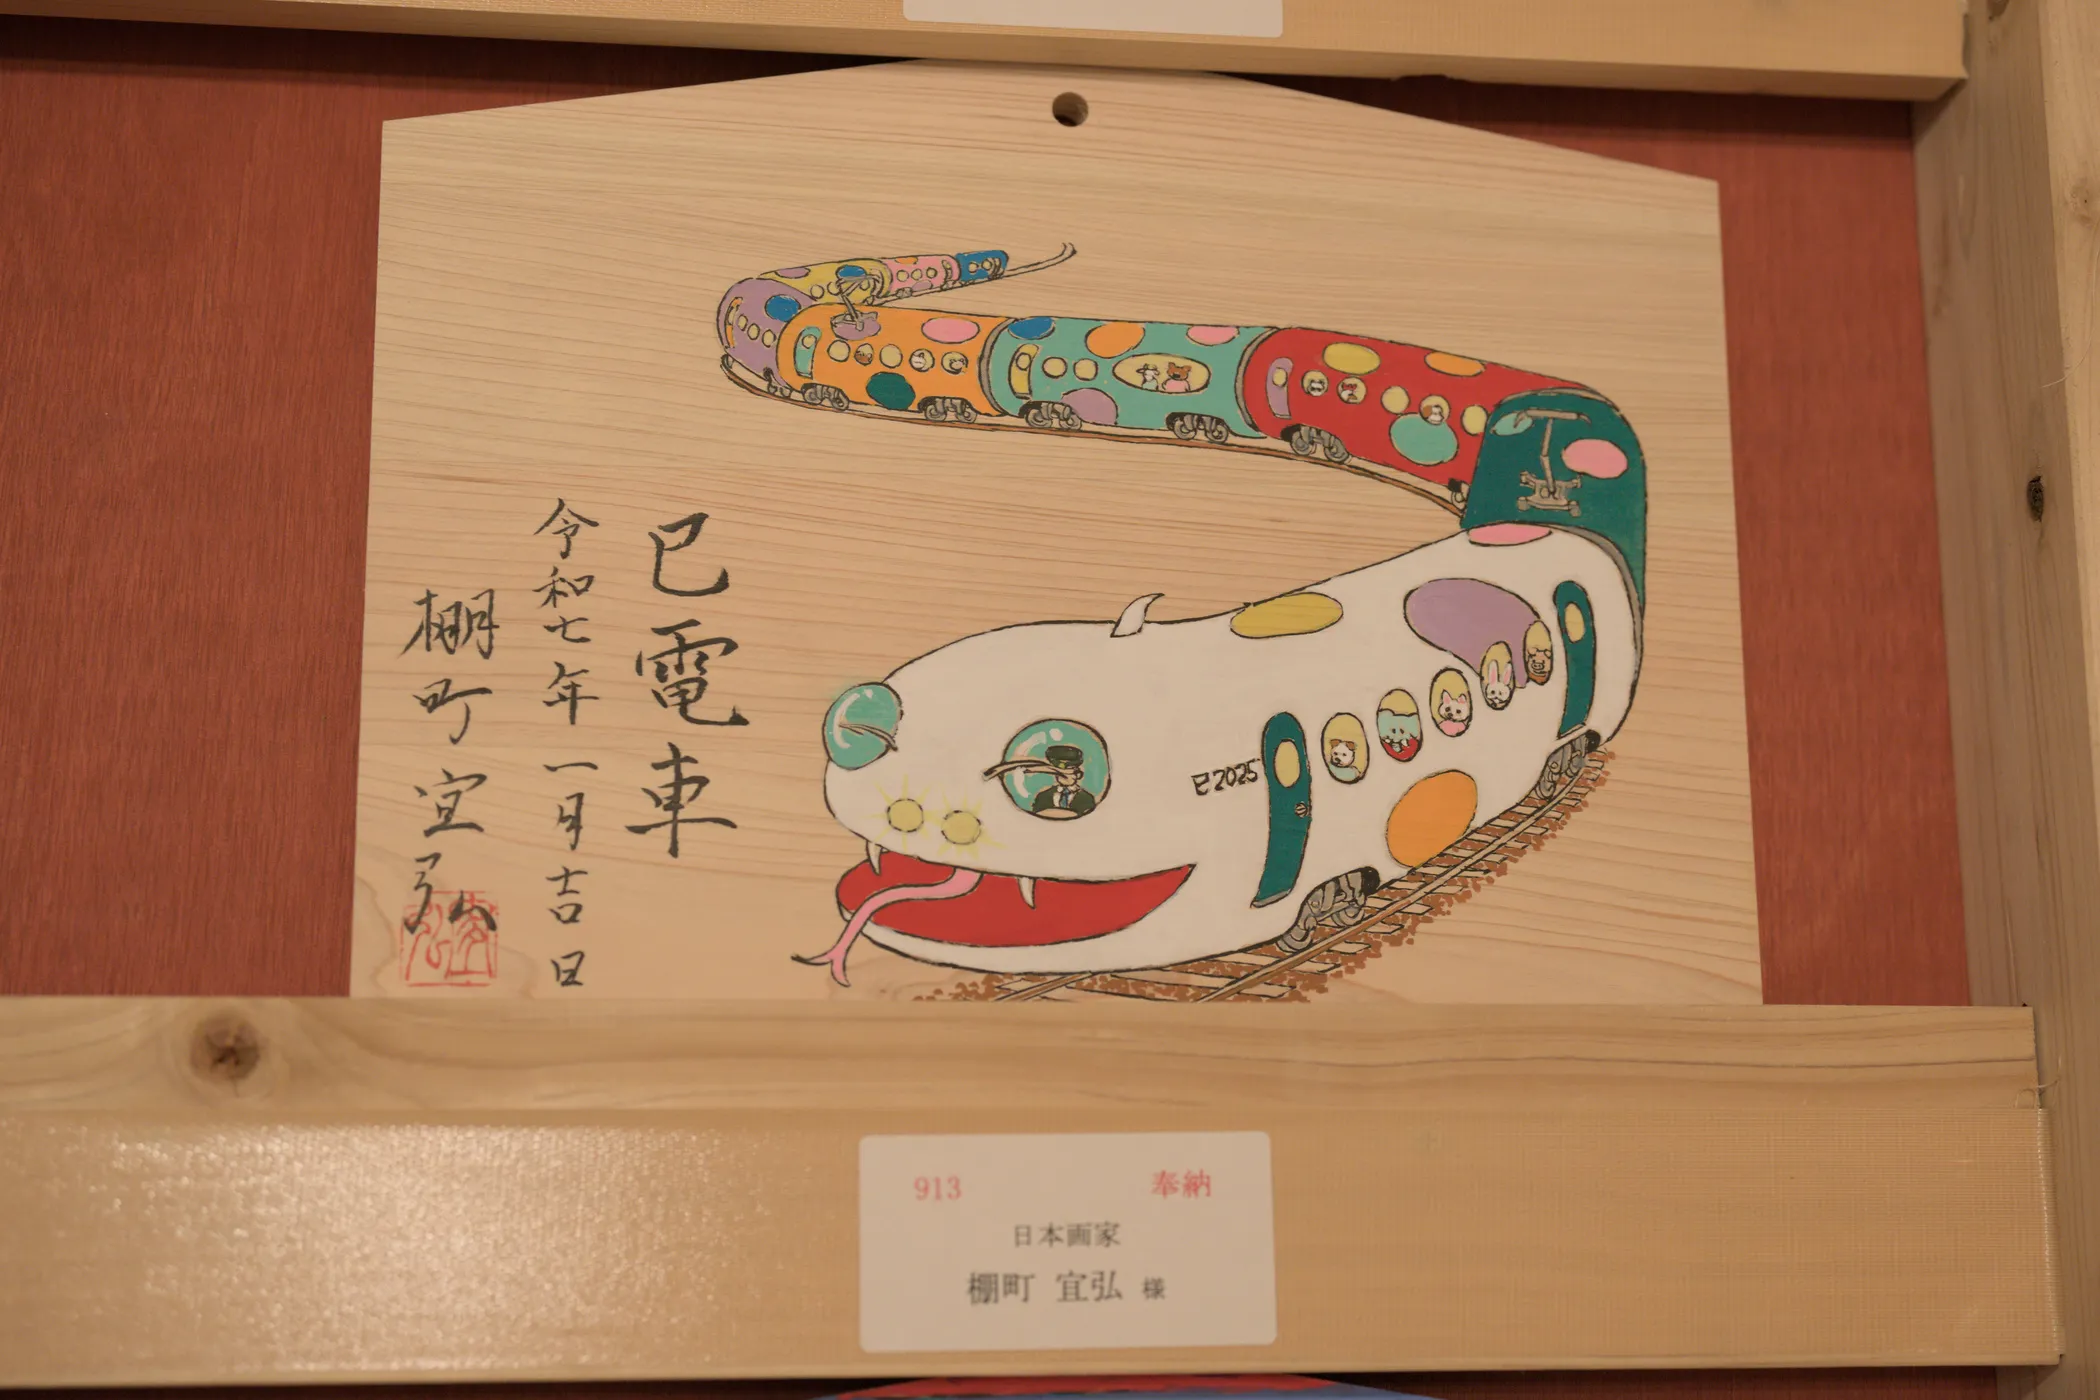 巳電車
令和七年一月吉日
棚町宜弘
巳2025
913 奉納
日本画家
棚町 宜弘 様